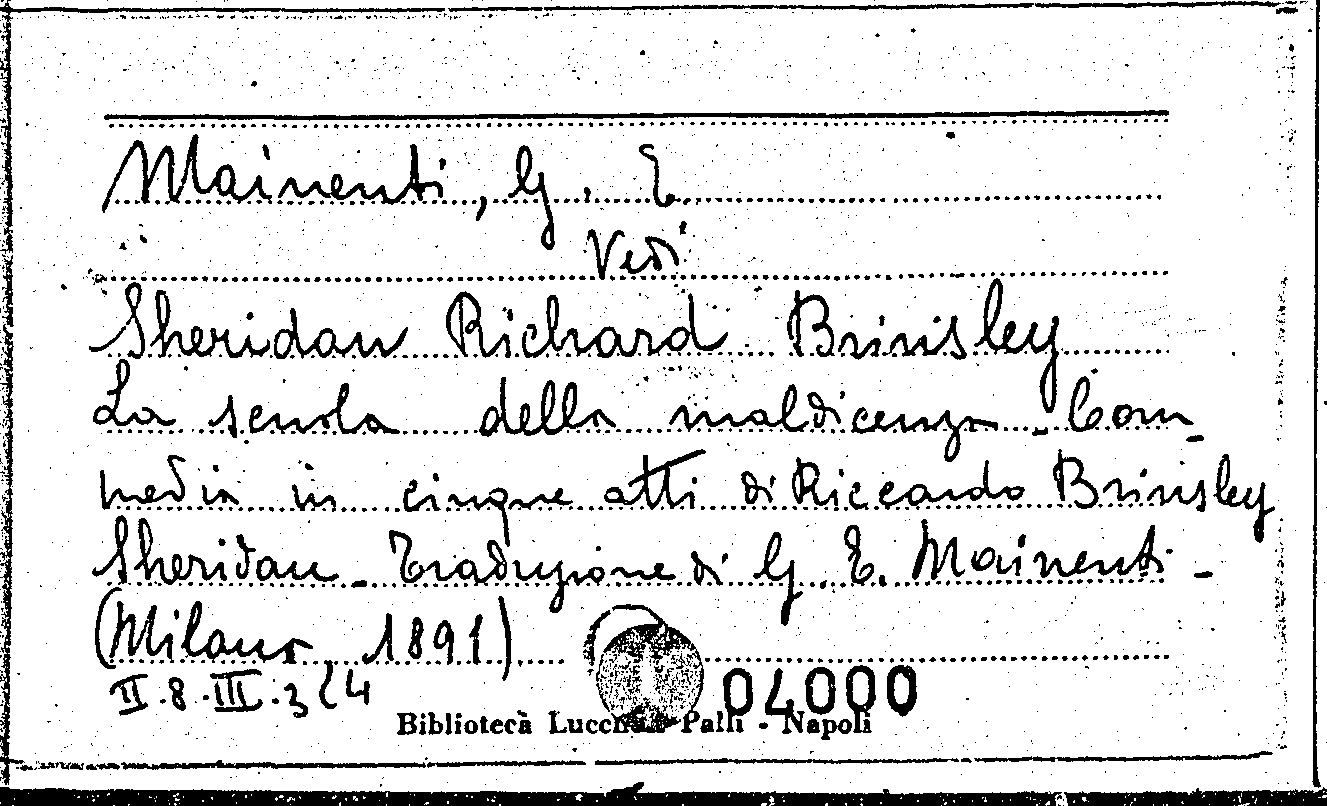 Mainenti, G. E.
Vedi
Sheridan Richard Brinsley
La scuola della maldicenza - Com-
media in cinque atti di Riccardo Brinsley
Sheridan - Traduzione di G. E. Mainenti -
(Milano, 1891)
II.8.III.3(4
04000
Biblioteca Lucchesi Palli - Napoli